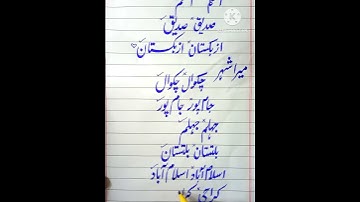 صدیق صدیق
ازبکستان ازبکستان
میرا شہر
چکوال چکوال
جام پور جام پور
جہلم جہلم
بلتستان بلتستان
اسلام آباد اسلام آباد
کراچی